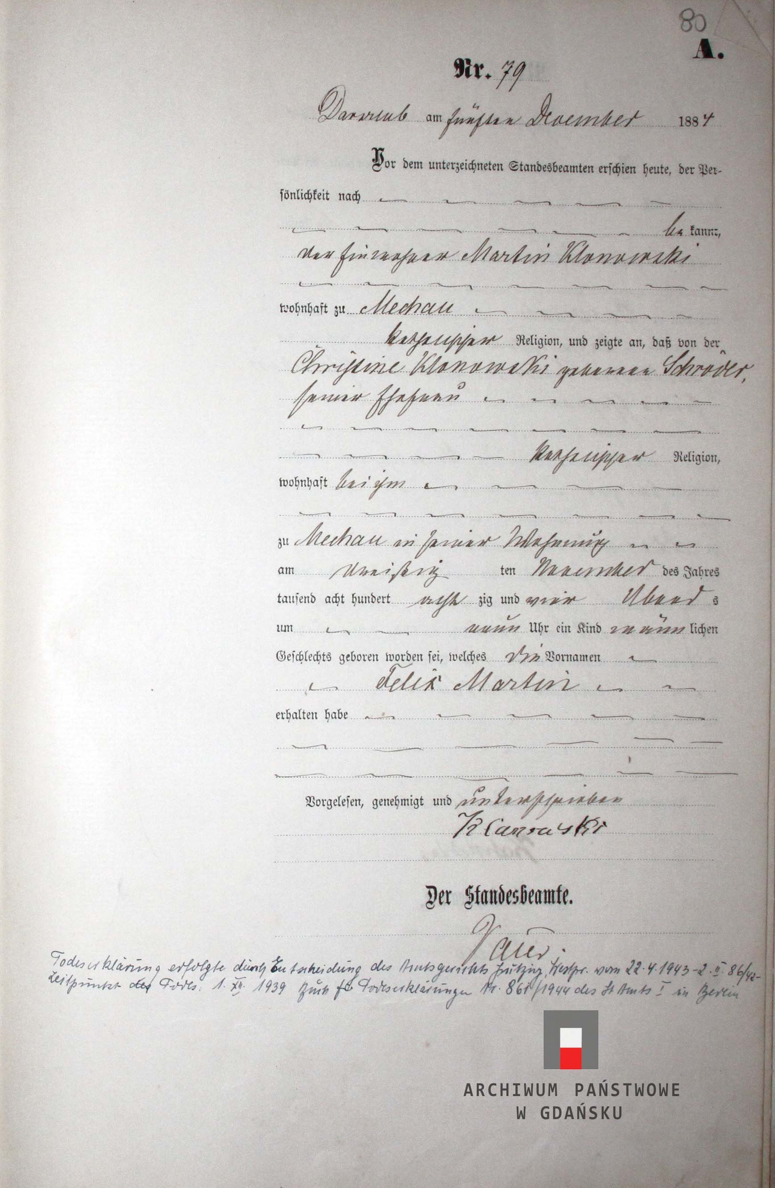 80
A.
Nr. 79
Darslub am fünften Dezember 1884
Vor dem unterzeichneten Standesbeamten erschien heute, der Per-
sönlichkeit nach
be kannt,
der Einwohner Martin Klonowski
wohnhaft zu Mechau
katholischer Religion, und zeigte an, daß von der
Christine Klonowski geborenen Schröder,
seiner Ehefrau
katholischer Religion,
wohnhaft bei ihm
zu Mechau in seiner Wohnung
am dreißig ten November des Jahres
tausend acht hundert acht zig und vier Abend s
um neun Uhr ein Kind männ lichen
Geschlechts geboren worden sei, welches die Vornamen
Felix Martin
erhalten habe
Vorgelesen, genehmigt und unterschrieben
Klanowski
Der Standesbeamte.
Todeserklärung erfolgte durch Entscheidung des Amtsgerichts Putzig, Westpr. vom 22.4.1943 - 2. II 86/42 -
Zeitpunkt des Todes: 1. XII. 1939 Buch für Todeserklärungen Nr. /1944 des St Amts I in Berlin
ARCHIWUM PAŃSTWOWE
W GDAŃSKU